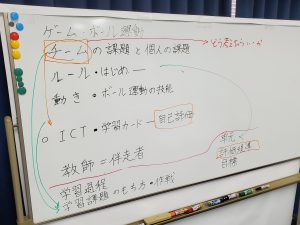 ゲーム・ボール運動
チームの課題と個人の課題
ルール・はじめ―
動き・ボール運動の技能
○ ICT・学習カード―自己評価
教師=伴走者
単元
評価規準
目標
学習過程
学習課題のもち方・作戦